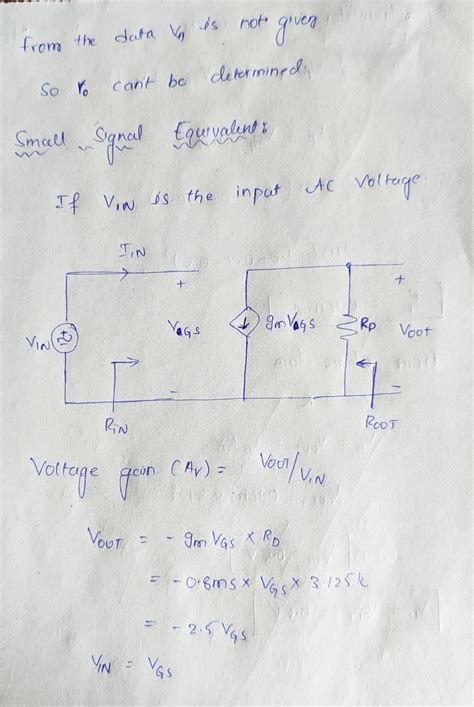 from the data Vη is not given
so r₀ can't be determined.
Small Signal Equivalent:
If VIN is the input AC Voltage.
IIN
+
+
VGS
gmVGS
RD
VOUT
VIN
RIN
ROUT
Voltage gain (AV) = VOUT/VIN
VOUT = - gm VGS × RD
= -0.8ms × VGS × 3.125k
= -2.5 VGS
VIN = VGS